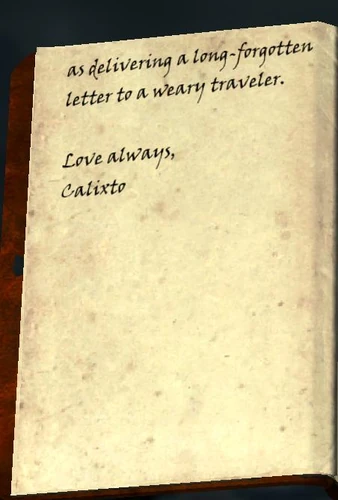 as delivering a long-forgotten
letter to a weary traveler.
Love always,
Calixto